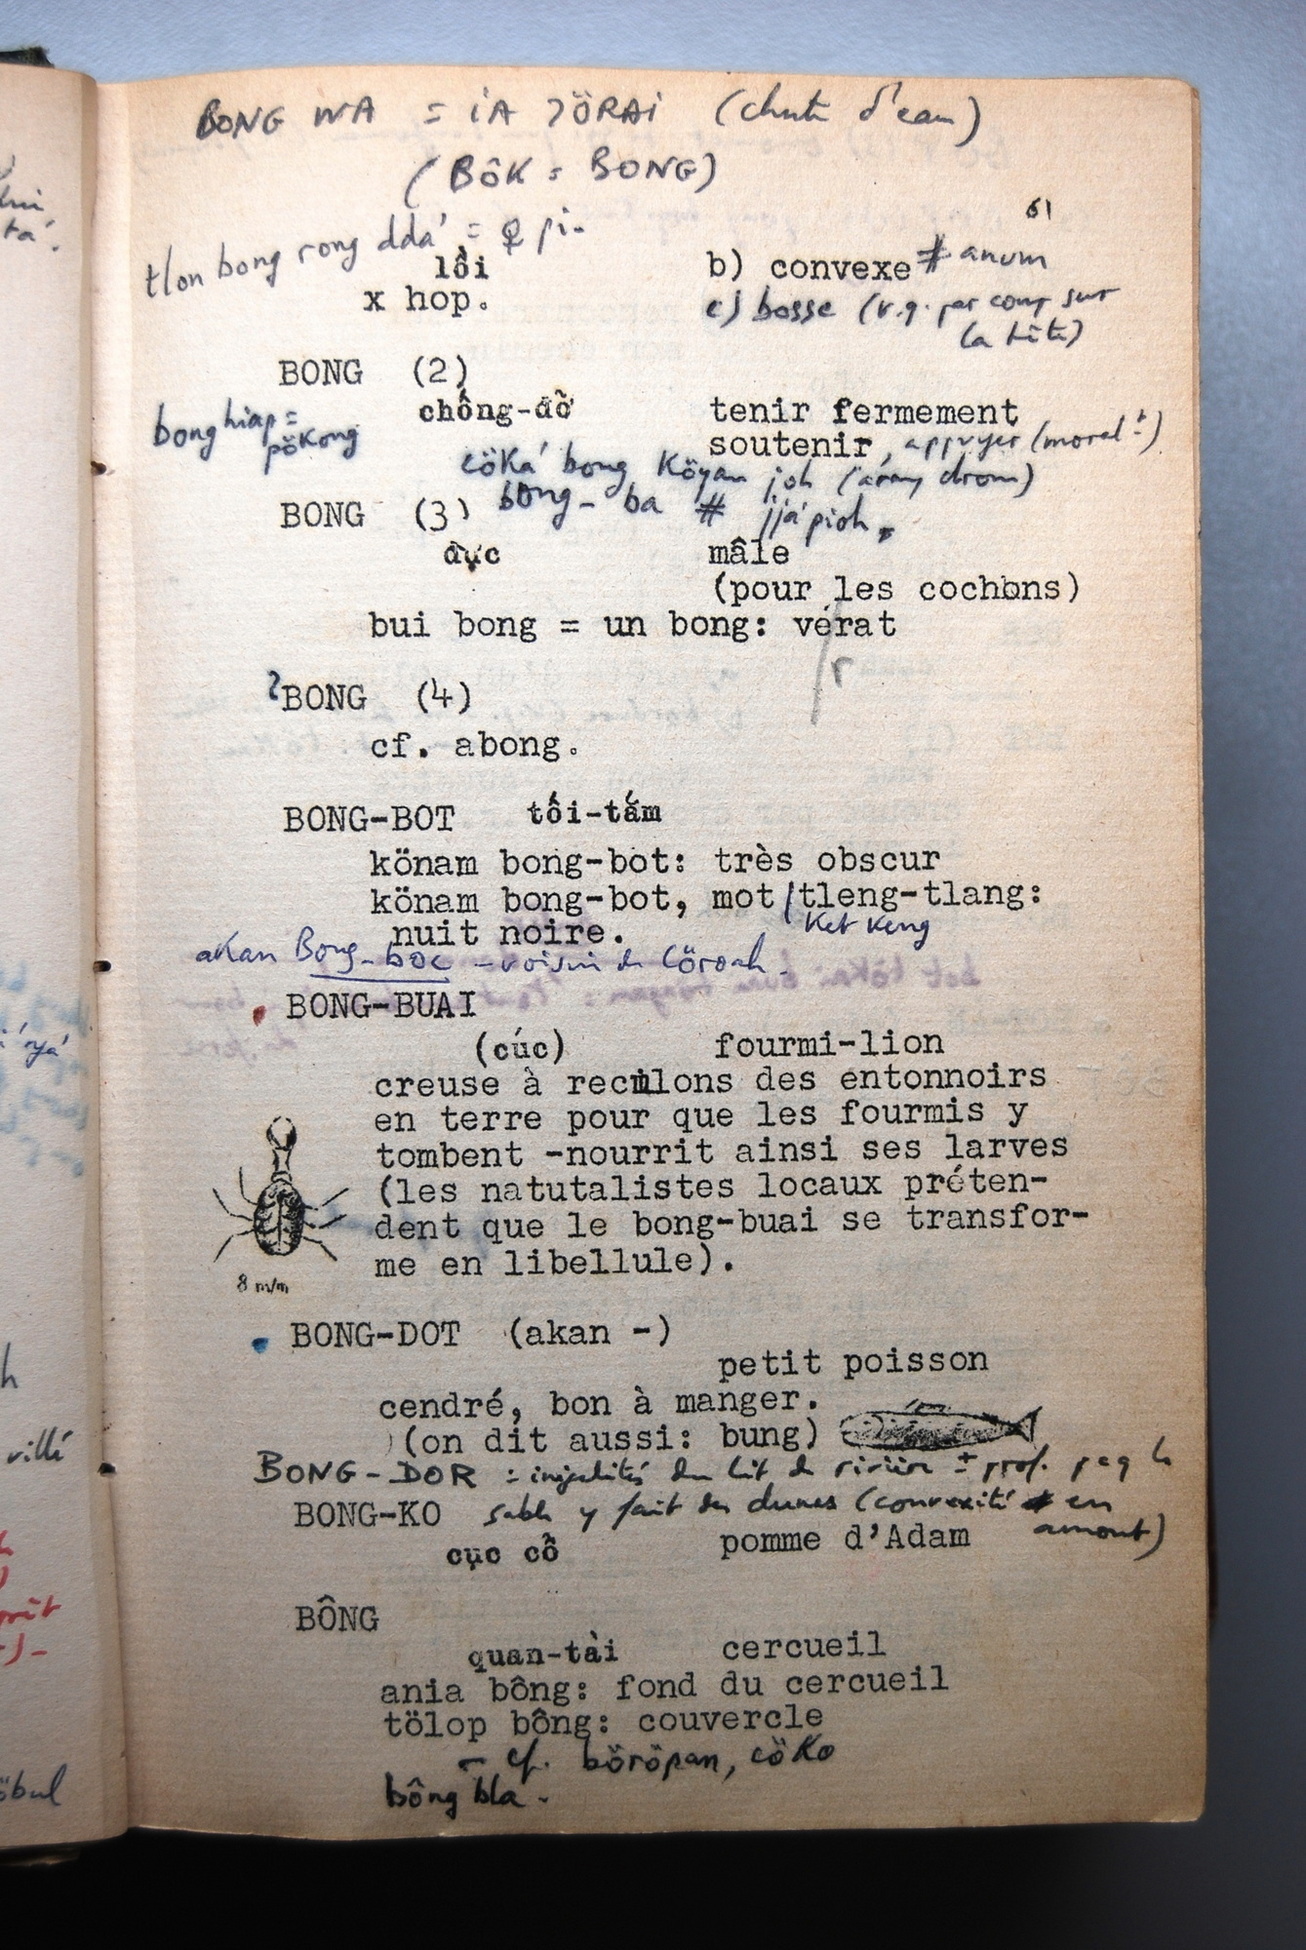 BONG WA = iA JÖRAI (chute d'eau)
(BôK = BONG)
61
tlon bong rong dda' = ♀ pi.
lồi b) convexe # anum
x hop. c) bosse (v.g. par coup sur
la tête)
BONG (2)
bong hiap = pökong
chống-đỡ tenir fermement
soutenir, appuyer (moralt)
cöka' bong köyam joh
BONG (3) bong-ba # jja' pioh
đực mâle
(pour les cochons)
bui bong = un bong: vérat
r
?BONG (4)
cf. abong.
BONG-BOT tối-tắm
könam bong-bot: très obscur
könam bong-bot, mot/tleng-tlang:
ket keng
nuit noire.
akan Bong-boc - voisin de Cöroah.
BONG-BUAI
(cúc) fourmi-lion
creuse à reculons des entonnoirs
en terre pour que les fourmis y
tombent -nourrit ainsi ses larves
(les natutalistes locaux préten-
dent que le bong-buai se transfor-
me en libellule).
8 m/m
BONG-DOT (akan -)
petit poisson
cendré, bon à manger.
(on dit aussi: bung)
BONG-DOR = inégalités du lit de rivière ± prof. pcq le
sable y fait des dunes (convexité # en
amont)
BONG-KO
cục cổ pomme d'Adam
BÔNG
quan-tài cercueil
ania bông: fond du cercueil
tölop bông: couvercle
- cf. böröpan, cöko
bông bla.